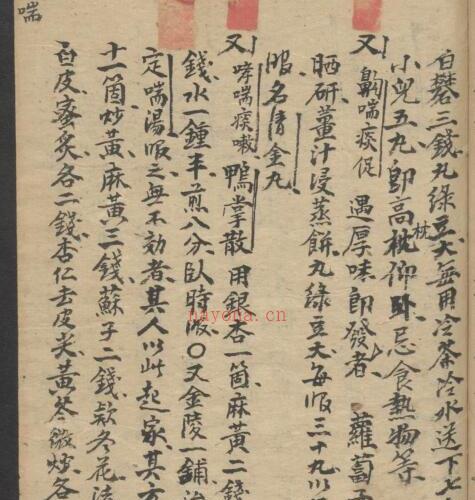 白礬三錢丸綠豆大每用冷茶冷水送下七
小兒五丸即高枕仰卧忌食熱物等
枕
又齁喘痰促 遇厚味即發者 蘿蔔
晒研薑汁浸蒸餅丸綠豆大每服三十丸以
服名清金丸
又哮喘痰嗽 鴨掌散 用銀杏一箇麻黃二錢
錢水一鍾半煎八分臥時服○又金陵一鋪治
定喘湯服之無不効者其人以此起家其方
十一箇炒黃麻黃三錢蘇子二錢款冬花
白皮蜜炙各二錢杏仁去皮尖黃芩微炒各
喘
nayona.cn